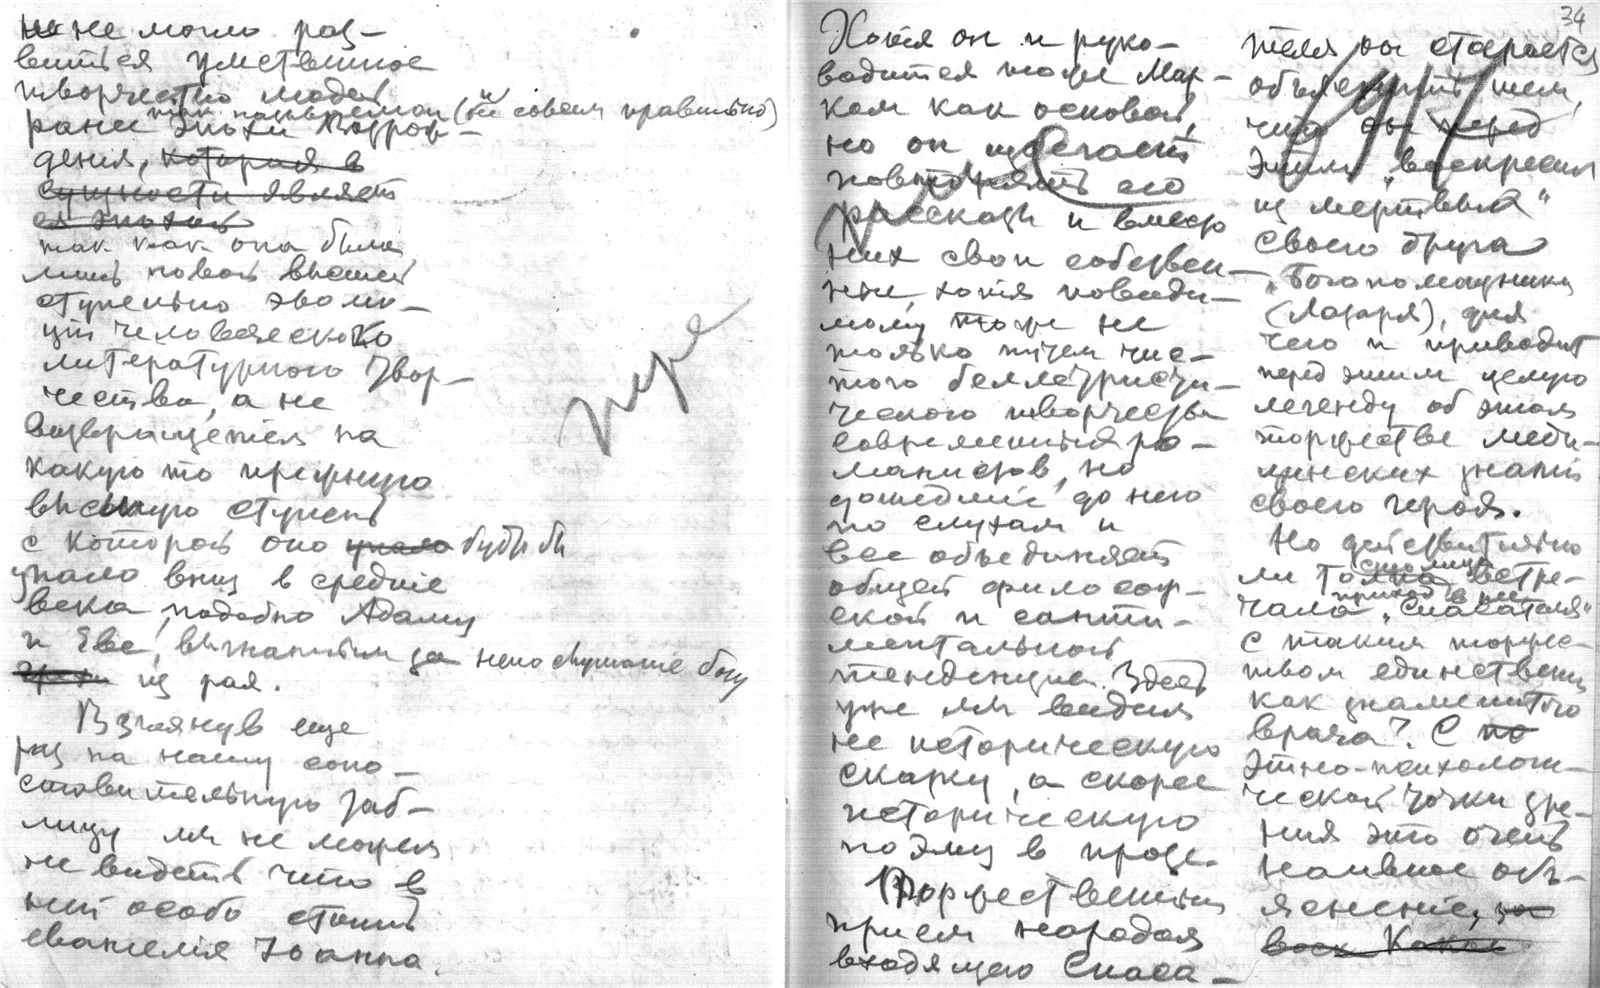 не не могло раз-
виться умственное
творчество людей
так называемой (не совсем правильно)
ранее эпохи Возрож-
дения, которая в
сущности являет
ся эпохой
так как она была
лишь новой высшей
ступенью эволю-
ции человеческого
литературного твор-
чества, а не
возвращением на
какую то прежнюю
высшую ступень
с которой оно упало будто бы
упало вниз в средние
века, подобно Адаму
и Еве, выгнанным за непослушание богу
из рая.
Взглянув еще
раз на нашу сопо-
ставительную таб-
лицу мы не можем
не видеть что в
ней особо стоит
евангелие Иоанна.
34
Хотя он и руко-
водится тоже Мар-
ком как основой,
но он избегает
повторять его
рассказы и вместо
них свои собствен-
ные, хотя повиди-
мому тоже не
только путем чис-
того беллетристи-
ческого творчества
современных ро-
манистов, но
дошедшие до него
по слухам и
все объединяет
общей философ-
ской и санти-
ментальной
тенденции. Здесь
уже мы видим
не историческую
сказку, а скорее
историческую
поэму в прозе.
Торжественный
прием народом
входящего Спаси-
теля он старается
объяснить тем,
что он перед
этим "воскресил
из мертвых"
своего друга
"Богопомощника"
(Лазаря), для
чего и приводит
перед этим целую
легенду об этом
торжестве меди-
цинских знаний
своего героя.
Но действительно
ли толпа столицы встре-
чала приход в нее "Спасителя"
с таким торже-
ством единственно
как знаменитого
врача? С по
этно-психологи-
ческой точки зре-
ния это очень
наивное объ-
яснение,